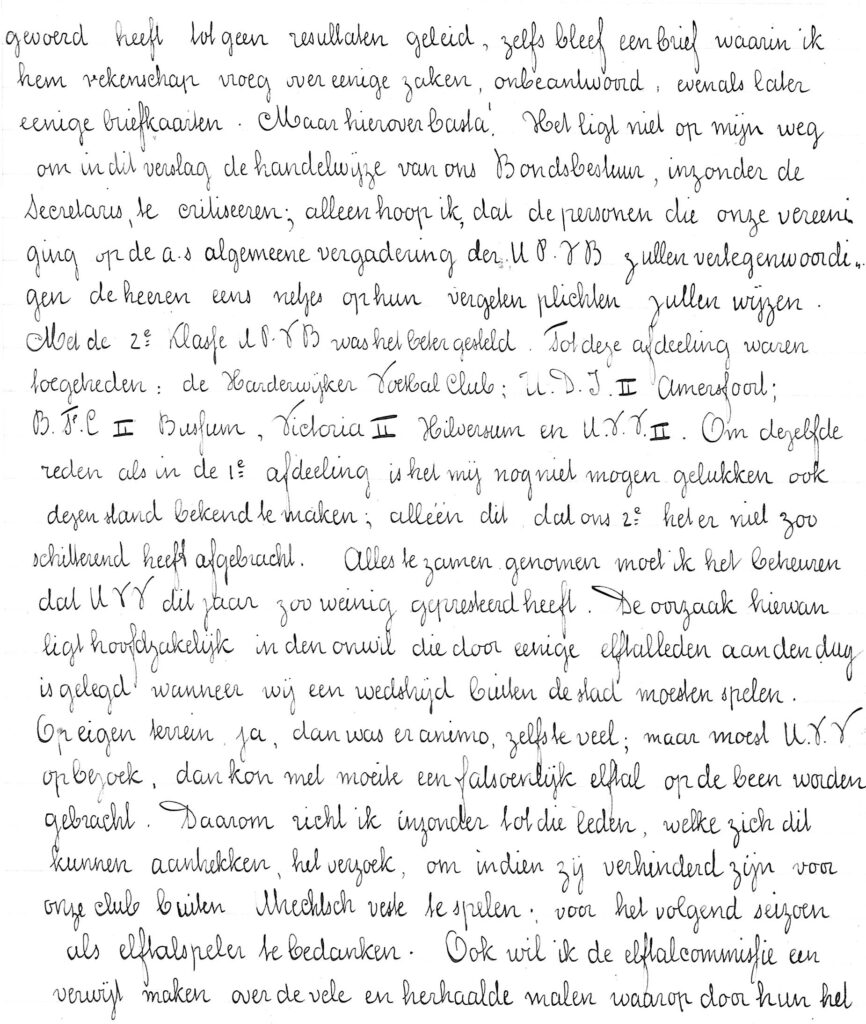 gevoerd heeft tot geen resultaten geleid, zelfs bleef een brief waarin ik
hem rekenschap vroeg over eenige zaken, onbeantwoord, evenals later
eenige briefkaarten. Maar hierover basta! Het ligt niet op mijn weg
om in dit verslag de handelwijze van ons Bondsbestuur, inzonder de
Secretaris, te critiseeren; alleen hoop ik, dat de personen die onze vereeni
ging op de a.s algemeene vergadering der U P.V B zullen vertegenwoordi„
gen de heeren eens netjes op hun vergeten plichten zullen wijzen.
Met de 2e Klasse U P.V B was het beter gesteld. Tot deze afdeeling waren
toegetreden: de Harderwijker Voetbal Club; U.D.I. II Amersfoort;
B.F.C II Bussum, Victoria II Hilversum en U.V.V. II. Om dezelfde
reden als in de 1e afdeeling is het mij nog niet mogen gelukken ook
dezen stand bekend te maken; alléén dit dat ons 2e het er niet zoo
schitterend heeft afgebracht. Alles te zamen genomen moet ik het betreuren
dat U V V dit jaar zoo weinig gepresteerd heeft. De oorzaak hiervan
ligt hoofdzakelijk in den onwil die door eenige elftalleden aan den dag
is gelegd wanneer wij een wedstrijd buiten de stad moesten spelen.
Op eigen terrein ja, dan was er animo, zelfs te veel; maar moest U.V.V
op bezoek, dan kon met moeite een fatsoenlijk elftal op de been worden
gebracht. Daarom richt ik inzonder tot die leden, welke zich dit
kunnen aantrekken, het verzoek, om indien zij verhinderd zijn voor
onze club buiten Utrechtsch veste te spelen, voor het volgend seizoen
als elftalspeler te bedanken. Ook wil ik de elftalcommissie een
verwijt maken over de vele en herhaalde malen waarop door hun het